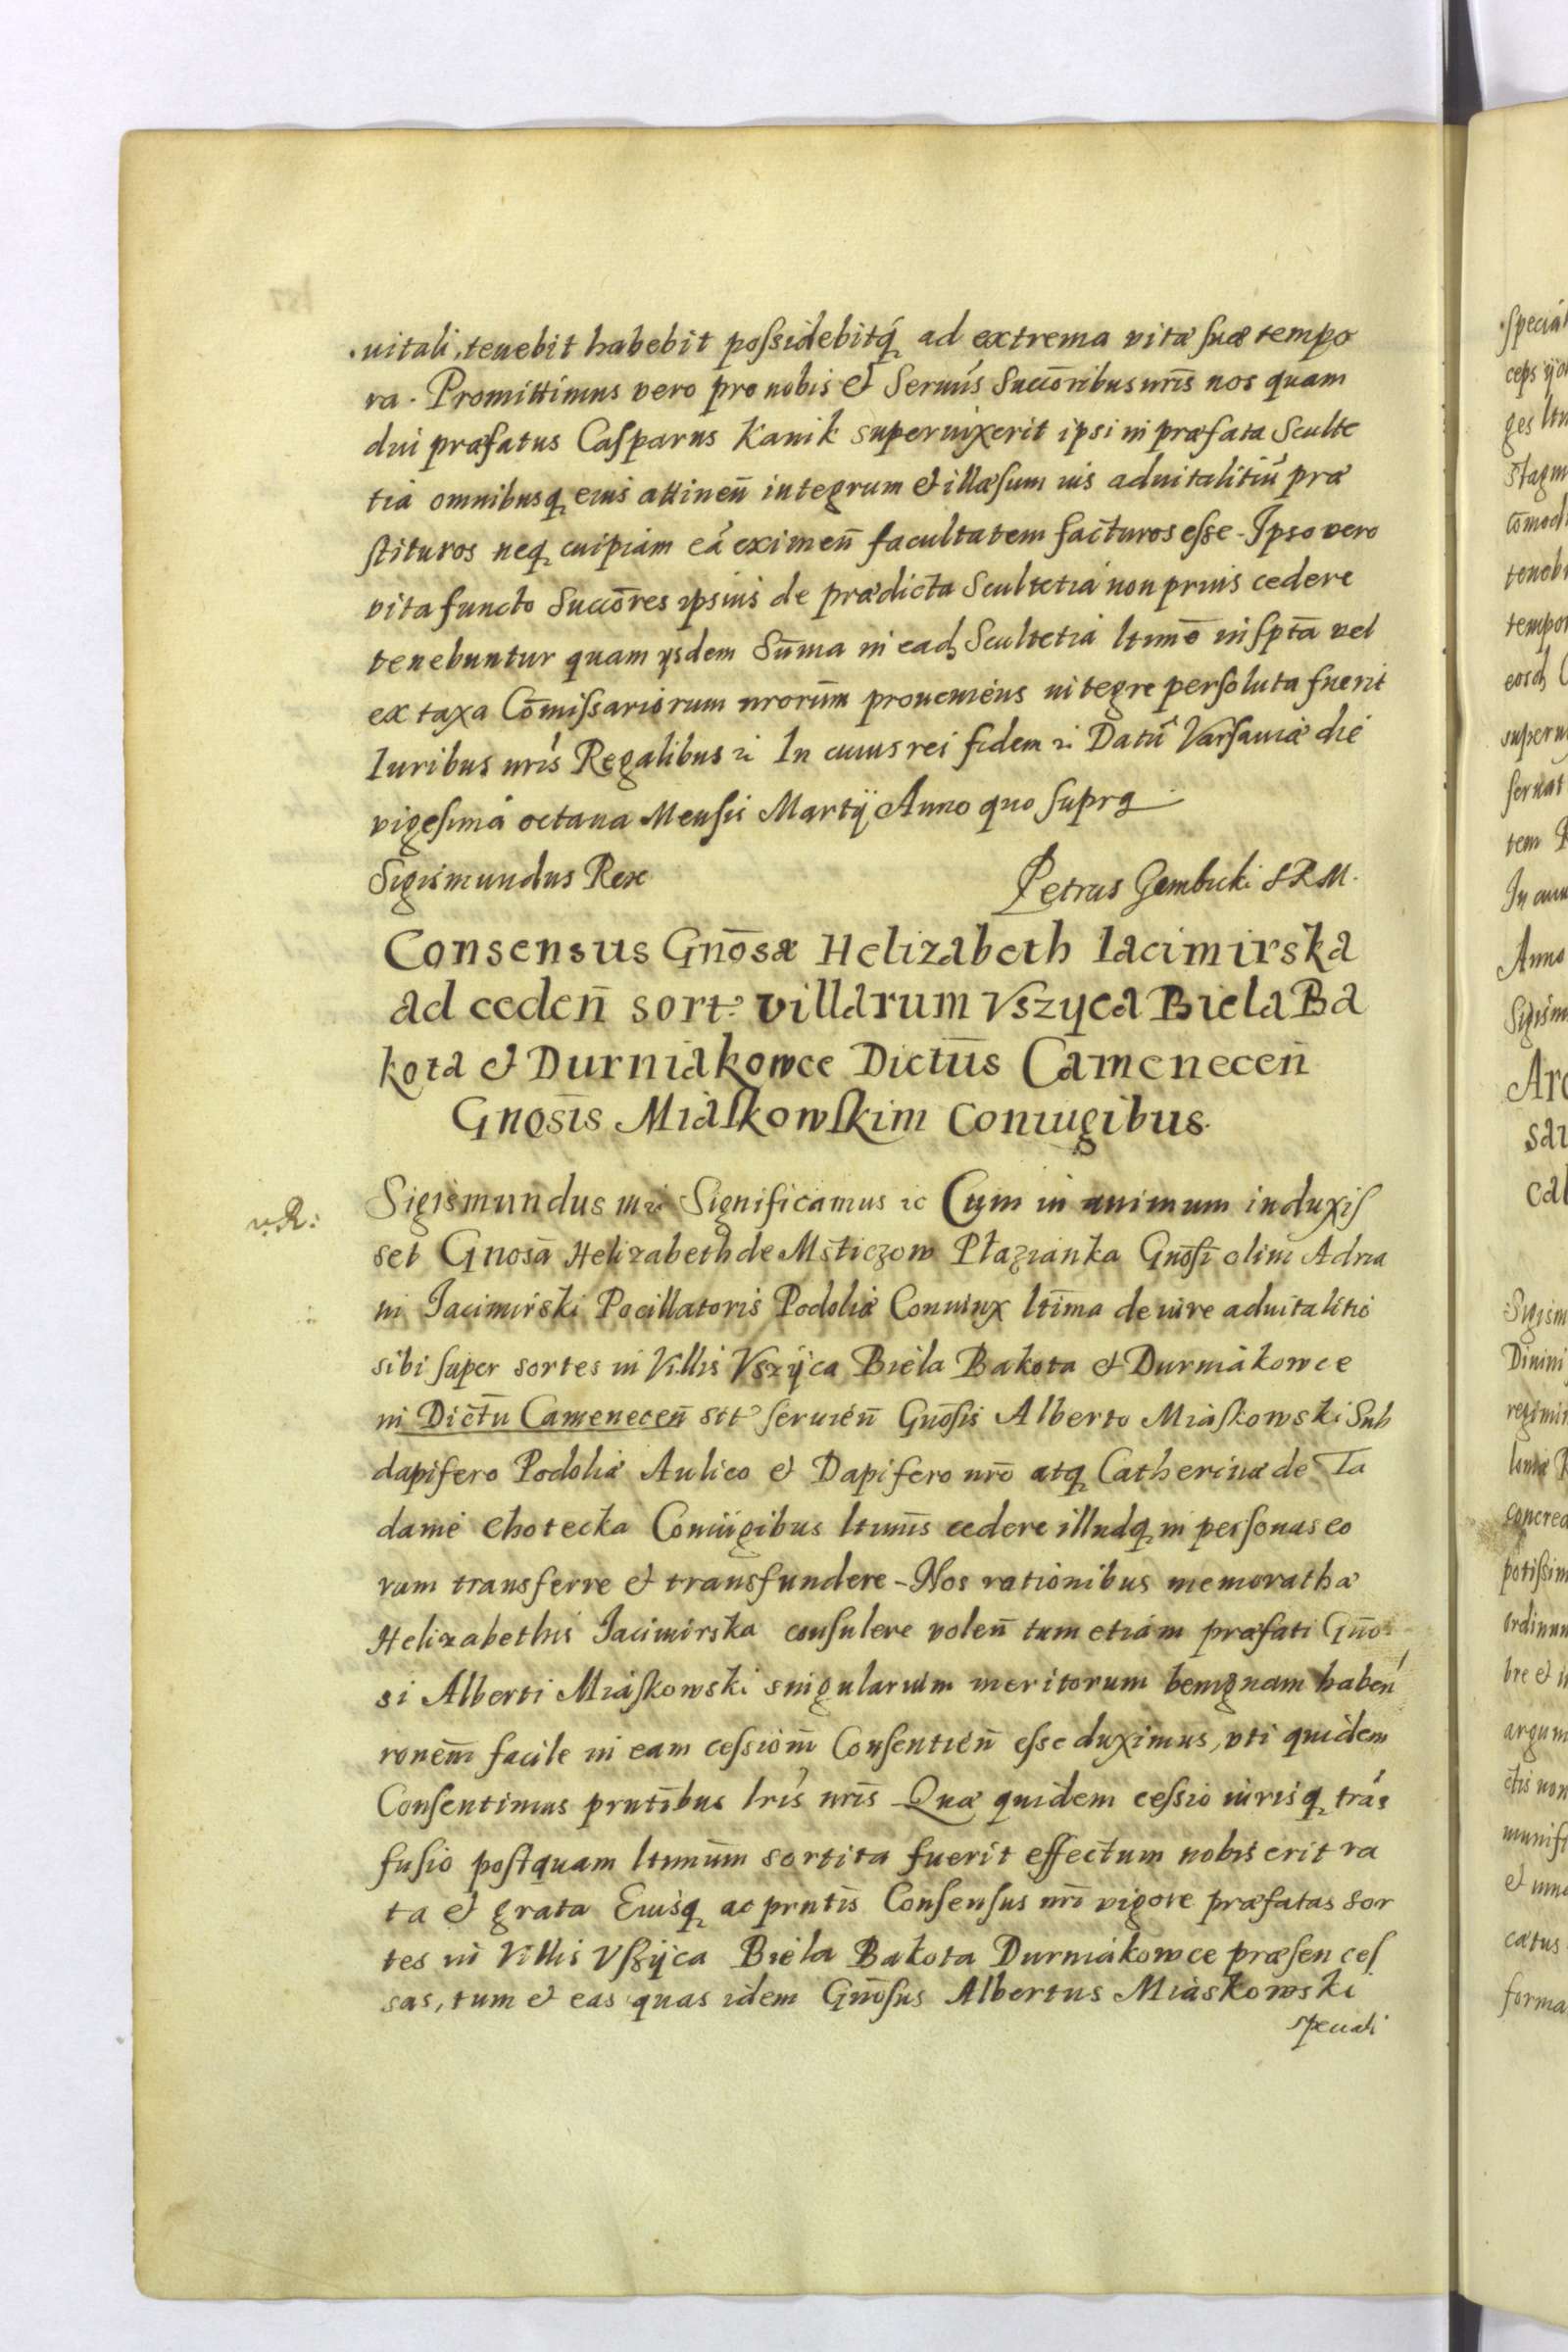 uitali, tenebit habebit possidebitq́ ad extrema vitæ suæ tempo
ra. Promittimus vero pro nobis et Serenis Succōribus nr̄is nos quam
diu præfatus Casparus Kanik superuixerit ipsi in præfata Sculte
tia omnibusq eius attineñ integrum et illæsum ius aduitalitiū præ
stituros neq cuipiam eá eximeñ facultatem facturos esse. Ipso vero
vita functo Succōres ipsius de prædicta Scultetia non prius cedere
tenebuntur quam ysdem Sūma in ead Scultetia ltimē inspta vel
ex taxa Cōmissariorum nrorūm proueniens integre persoluta fuerit
Iuribus nr̄is Regalibus ꝛc In cuius rei fidem ꝛc Datū Varsauiæ die
vigesima octaua Mensis Martij Anno quo supra
Sigismundus Rex Petrus Gembicki S R M.
Consensus Gnōsæ Helizabeth Iacimirska
ad cedeñ sort. villarum Vszyca Biela Ba
kota et Durniakowce Dictūs Cameneceñ
Gnosīs Miaskowskim Coniugibus.
Sigismundus ꝛc Significamus ꝛc Cum in animum induxis
set Gnosā Helizabeth de Msticzow Płazianka Gnōsī olim Adria
ni Jacimirski Pocillatoris Podoliæ Coniux ltīma de iure aduitalitio
sibi super sortes in Villis Vszÿca Biela Bakota et Durniakowce
in Dictū Cameneceñ sit seruieñ Gnōsis Alberto Miaskowski Sub
dapifero Podoliæ Aulico et Dapifero nrō atq Catherinæ de Ta
danie Chotecka Coniugibus ltimīs cedere illudq in personas eo
rum transferre et transfundere. Nos rationibus memorathæ
Helizabethis Jacimirska consulere voleñ tum etiam præfati Gnō
si Alberti Miaskowski singularium meritorum benignam habeń
ronēm facile in eam cessionē Consentieñ esse duximus, vti quidem
Consentimus prntībus lrīs nrīs Quæ quidem cessio iurisq trás
fusio postquam ltimūm sortita fuerit effectum nobis erit ra
ta et grata Eiusq ac prntīs Consensus nrī vigore præfatas sor
tes in Villis Vszÿca Biela Bakota Durniakowce præsen ces
sas, tum et eas quas idem Gnōsus Albertus Miaskowski
speciali